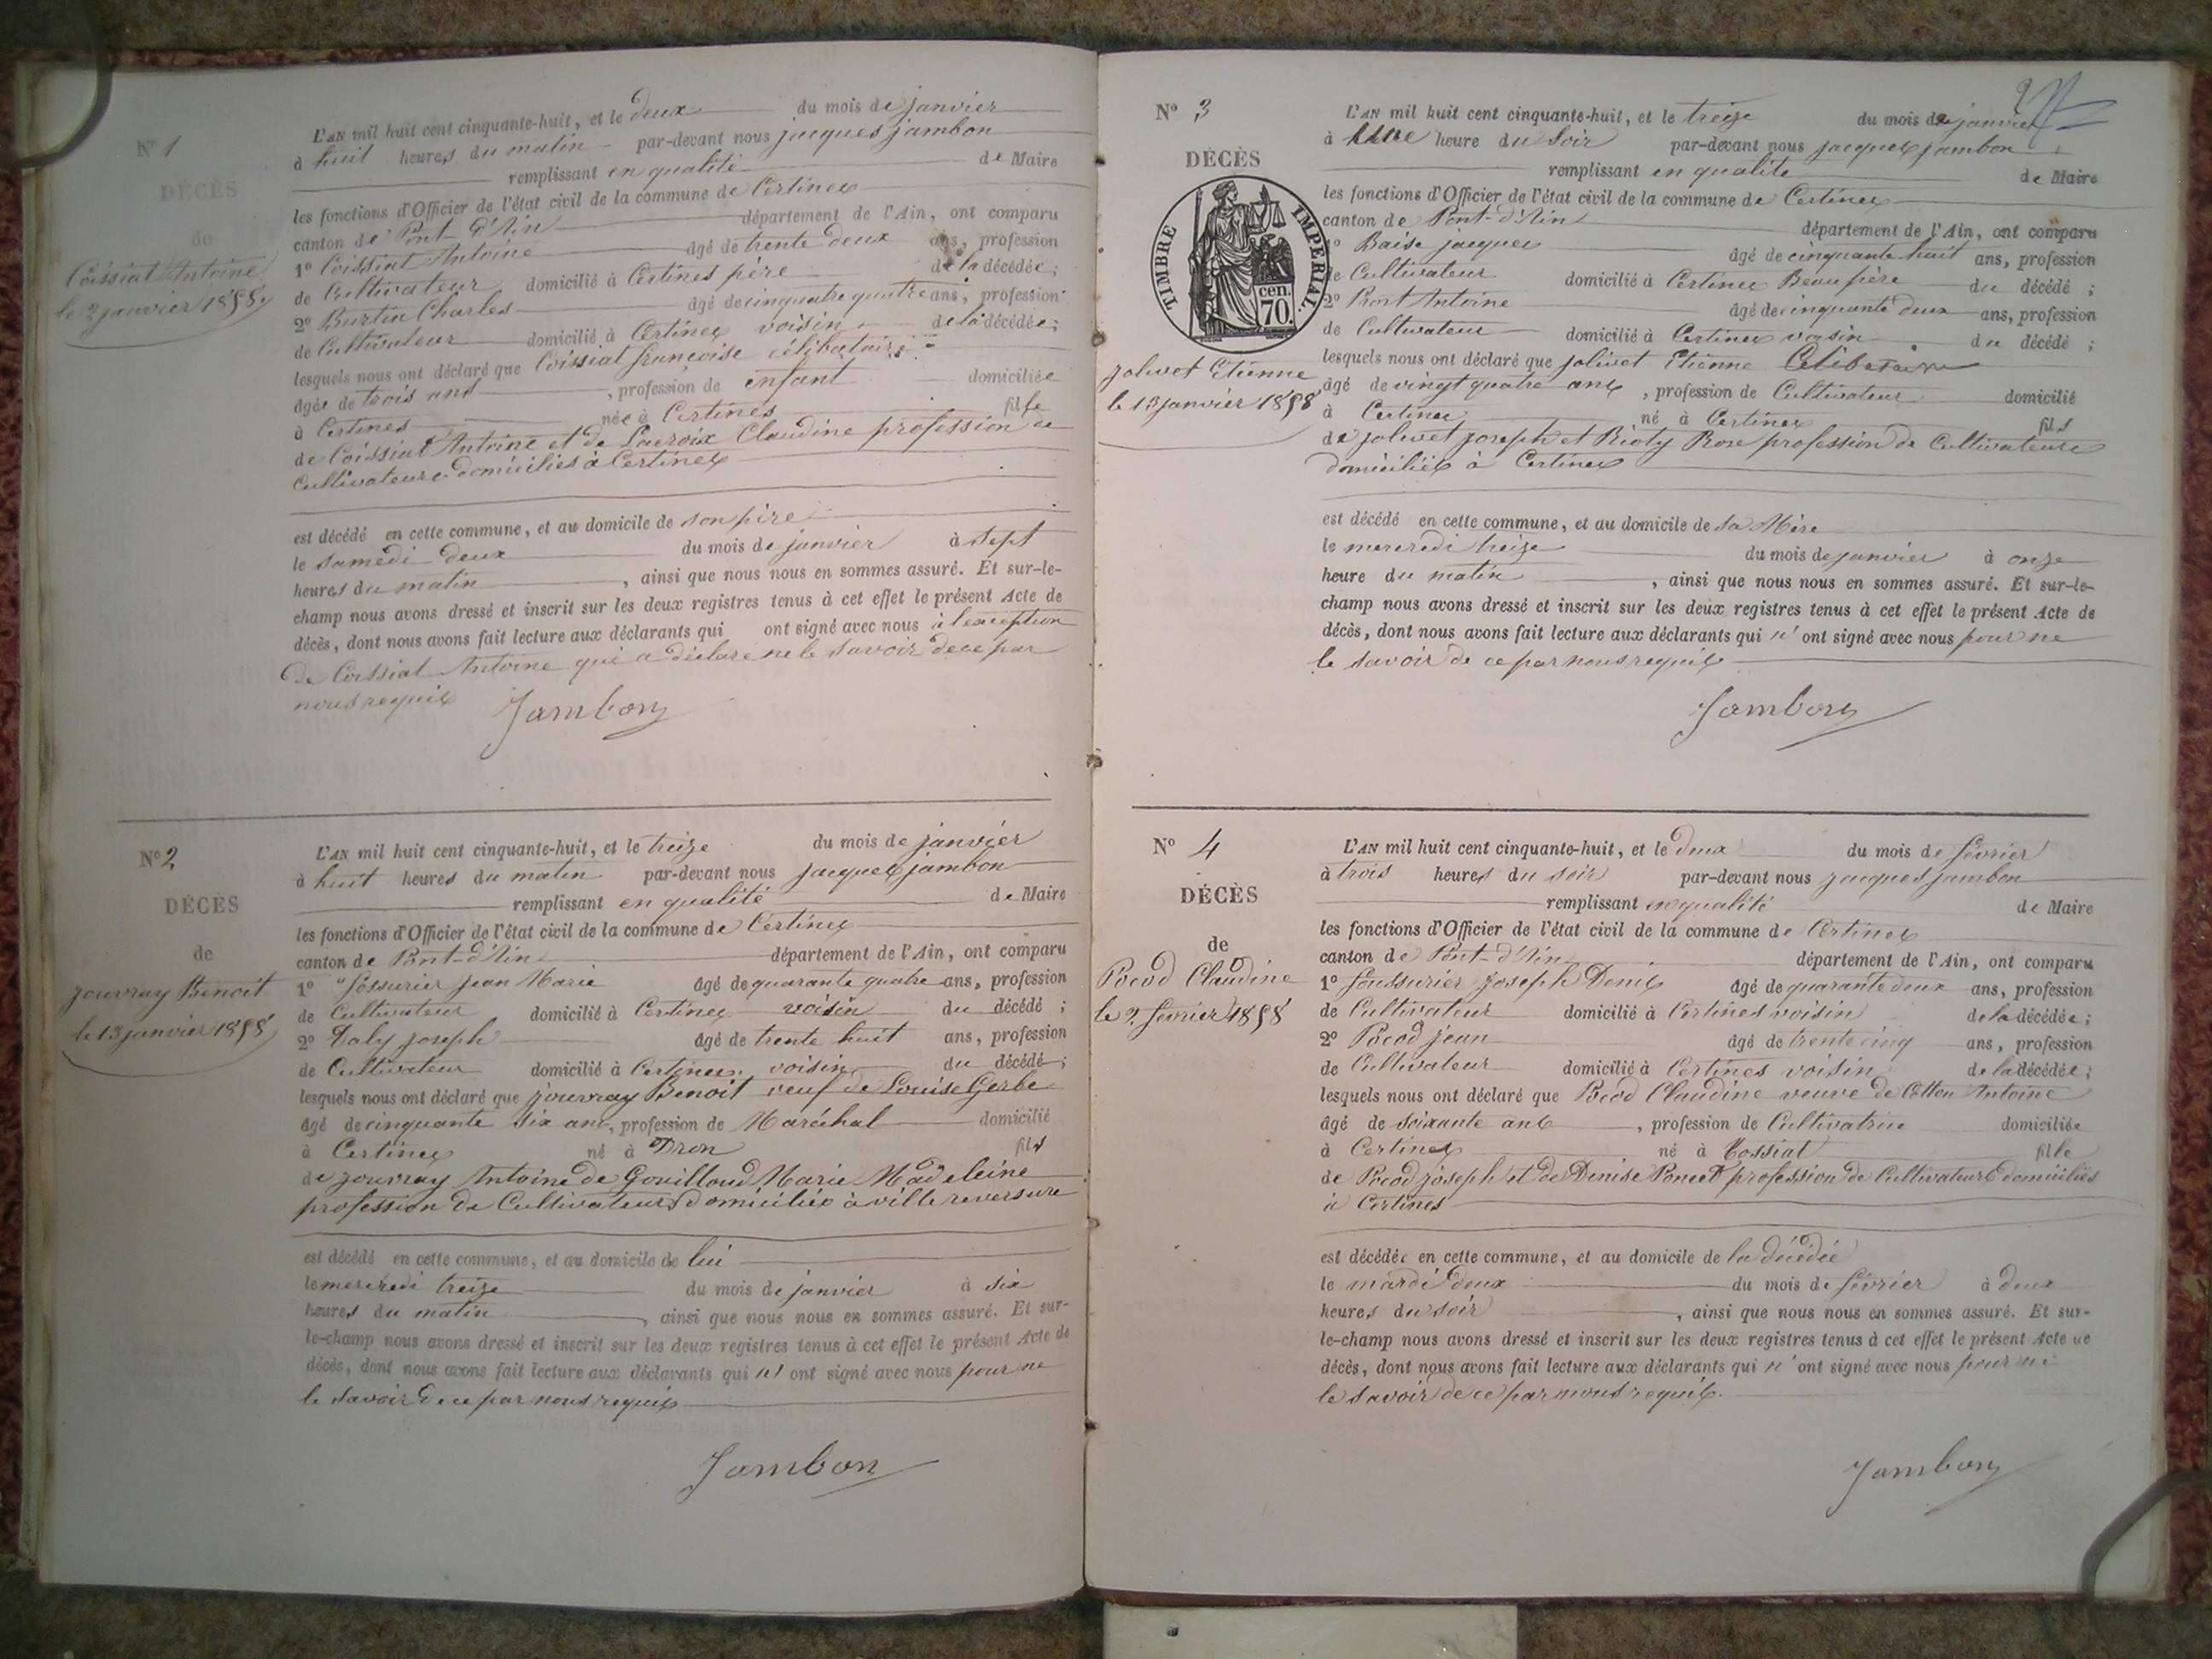 N° 1
DÉCÈS
de
Coissiat Antoine
le 2 janvier 1858
L'AN mil huit cent cinquante-huit, et le deux du mois de janvier
à huit heures du matin par-devant nous jacques jambon
remplissant en qualité de Maire
les fonctions d'Officier de l'état civil de la commune de Certines
canton de Pont-d'Ain département de l'Ain, ont comparu
1° Coissiat Antoine âgé de trente deux ans, profession
de Cultivateur domicilié à Certines père de la décédée;
2° Burtin Charles âgé de cinquante quatre ans, profession
de Cultivateur domicilié à Certines voisin de la décédée;
lesquels nous ont déclaré que Coissiat françoise célibataire
âgée de trois ans, profession de enfant domiciliée
à Certines née à Certines fille
de Coissiat Antoine et de Lacroix Claudine profession de
Cultivateurs domiciliés à Certines
est décédé en cette commune, et au domicile de son père
le samedi deux du mois de janvier à sept
heures du matin, ainsi que nous nous en sommes assuré. Et sur-le-
champ nous avons dressé et inscrit sur les deux registres tenus à cet effet le présent Acte de
décès, dont nous avons fait lecture aux déclarants qui ont signé avec nous à l'exception
de Coissiat Antoine qui a déclaré ne le savoir de ce par
nous requis
Jambon
N° 2
DÉCÈS
de
jouvray Benoit
le 13 janvier 1858
L'AN mil huit cent cinquante-huit, et le treize du mois de janvier
à huit heures du matin par-devant nous jacques jambon
remplissant en qualité de Maire
les fonctions d'Officier de l'état civil de la commune de Certines
canton de Pont-d'Ain département de l'Ain, ont comparu
1° Fossurier jean Marie âgé de quarante quatre ans, profession
de Cultivateur domicilié à Certines voisin du décédé;
2° Daly joseph âgé de trente huit ans, profession
de Cultivateur domicilié à Certines voisin du décédé;
lesquels nous ont déclaré que jouvray Benoit veuf de Louise Gerbe
âgé de cinquante six ans, profession de Maréchal domicilié
à Certines né à Dron fils
de jouvray Antoine de Gouilloud Marie Madeleine
profession de Cultivateurs domiciliés à ville reversure
est décédé en cette commune, et au domicile de lui
le mercredi treize du mois de janvier à six
heures du matin, ainsi que nous nous en sommes assuré. Et sur-
le-champ nous avons dressé et inscrit sur les deux registres tenus à cet effet le présent Acte de
décès, dont nous avons fait lecture aux déclarants qui n'ont signé avec nous pour ne
le savoir de ce par nous requis
Jambon
N° 3
DÉCÈS
TIMBRE IMPERIAL
70 cen.
jolivet Etienne
le 13 janvier 1858
L'AN mil huit cent cinquante-huit, et le treize du mois de janvier
à une heure du soir par-devant nous jacques jambon
remplissant en qualité de Maire
les fonctions d'Officier de l'état civil de la commune de Certines
canton de Pont-d'Ain département de l'Ain, ont comparu
1° Baise jacques âgé de cinquante huit ans, profession
de Cultivateur domicilié à Certines Beau père du décédé;
2° Pront Antoine âgé de cinquante deux ans, profession
de Cultivateur domicilié à Certines voisin du décédé;
lesquels nous ont déclaré que jolivet Etienne Célibataire
âgé de vingt quatre ans, profession de Cultivateur domicilié
à Certines né à Certines fils
de jolivet joseph et Rioty Rose profession de Cultivateurs
domiciliés à Certines
est décédé en cette commune, et au domicile de sa Mère
le mercredi treize du mois de janvier à onze
heure du matin, ainsi que nous nous en sommes assuré. Et sur-le-
champ nous avons dressé et inscrit sur les deux registres tenus à cet effet le présent Acte de
décès, dont nous avons fait lecture aux déclarants qui n'ont signé avec nous pour ne
le savoir de ce par nous requis
Jambon
N° 4
DÉCÈS
de
Pocod Claudine
le 2 février 1858
L'AN mil huit cent cinquante-huit, et le deux du mois de février
à trois heures du soir par-devant nous jacques jambon
remplissant en qualité de Maire
les fonctions d'Officier de l'état civil de la commune de Certines
canton de Pont-d'Ain département de l'Ain, ont comparu
1° joseph Denis âgé de quarante deux ans, profession
de Cultivateur domicilié à Certines voisin de la décédée;
2° Pocod jean âgé de trente cinq ans, profession
de Cultivateur domicilié à Certines voisin de la décédée;
lesquels nous ont déclaré que Pocod Claudine veuve de Cotton Antoine
âgé de soixante ans, profession de Cultivatrice domiciliée
à Certines né à Tossiat fille
de Pocod joseph et de Denise Poncet profession de Cultivateurs domiciliés
à Certines
est décédée en cette commune, et au domicile de la décédée
le mardi deux du mois de février à deux
heures du soir, ainsi que nous nous en sommes assuré. Et sur-
le-champ nous avons dressé et inscrit sur les deux registres tenus à cet effet le présent Acte de
décès, dont nous avons fait lecture aux déclarants qui n'ont signé avec nous pour ne
le savoir de ce par nous requis.
Jambon